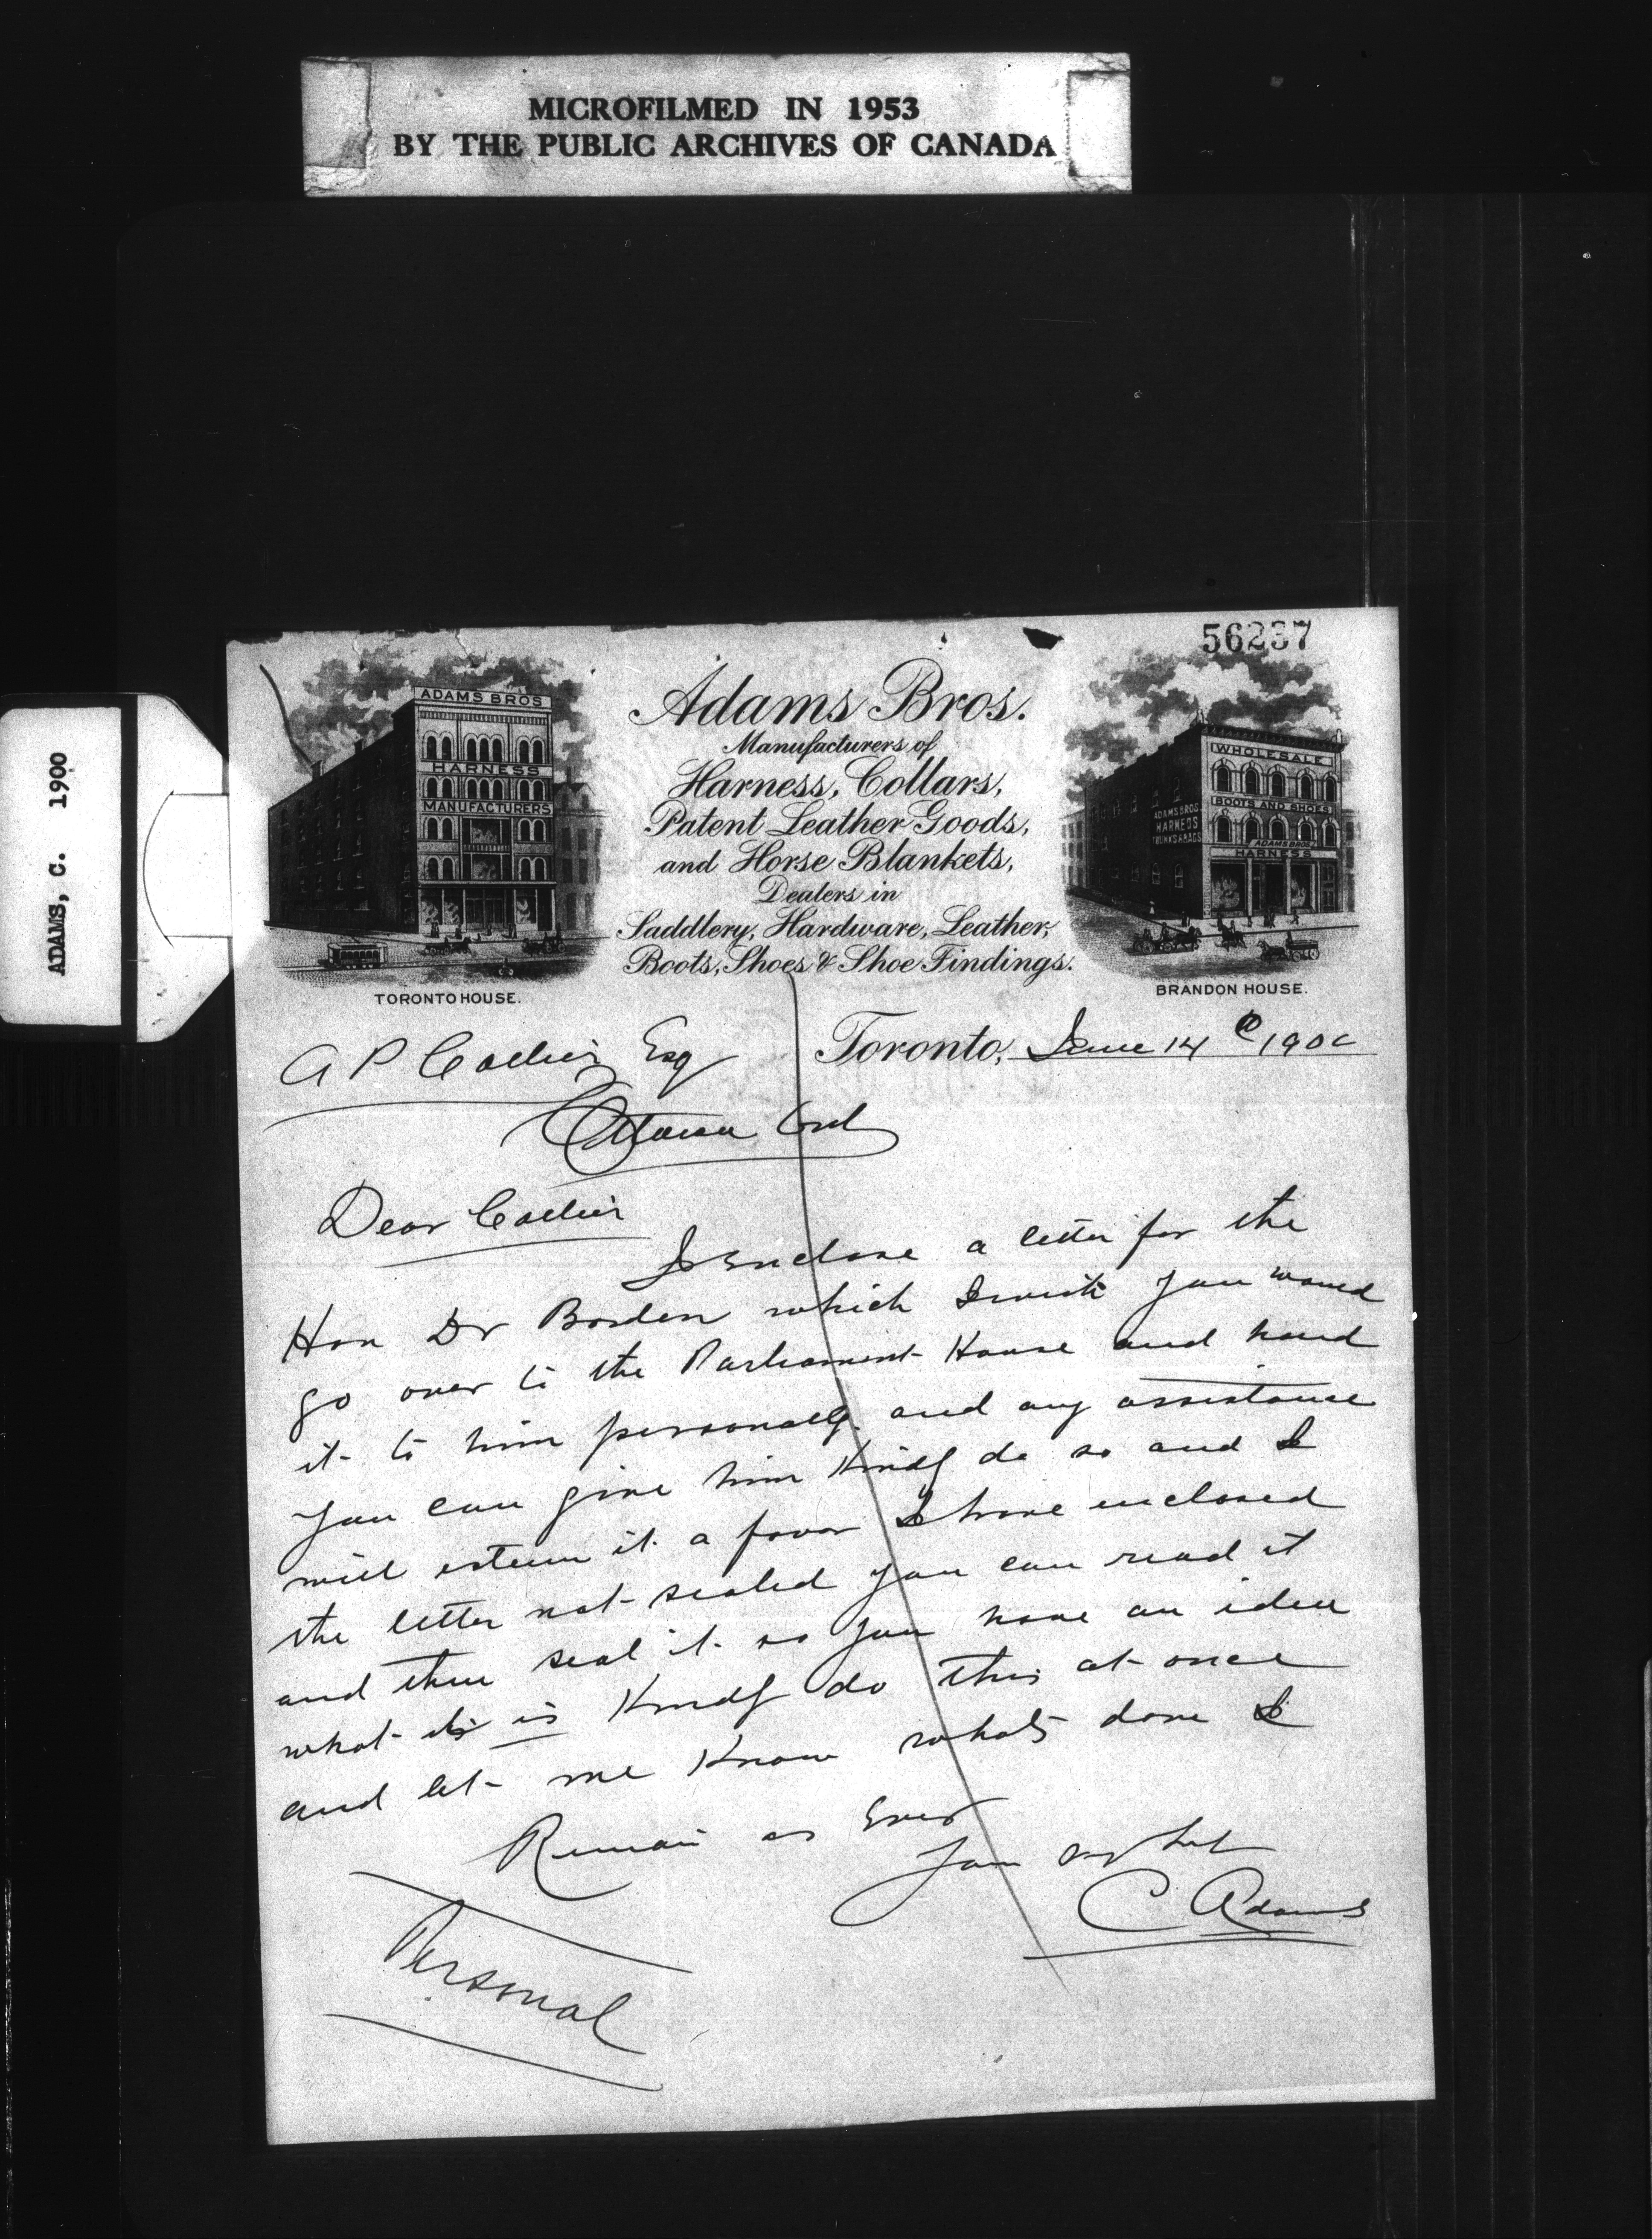 MICROFILMED IN 1953
BY THE PUBLIC ARCHIVES OF CANADA
ADAMS, C. 1900
56237
ADAMS BROS
HARNESS
MANUFACTURERS
TORONTO HOUSE.
Adams Bros.
Manufacturers of
Harness, Collars,
Patent Leather Goods,
and Horse Blankets,
Dealers in
Saddlery, Hardware, Leather,
Boots, Shoes & Shoe Findings.
WHOLESALE
BOOTS AND SHOES
ADAMS BROS
HARNESS
ADAMS BROS
HARNESS
TRUNKS & BAGS
BRANDON HOUSE.
Toronto, June 14 1900
A P Collier Esq
Ottawa Ont
Dear Collier
I Enclose a letter for the
Hon Dr Borden which I wish you would
go over to the Parliament House and hand
it to him personally and any assistance
you can give him Kindly do so and I
will esteem it a favor I have enclosed
the letter not sealed you can read it
and then seal it so you have an idea
what it is Kindly do this at once
and let me Know whats done I
Remain as Ever
C Adams
Personal